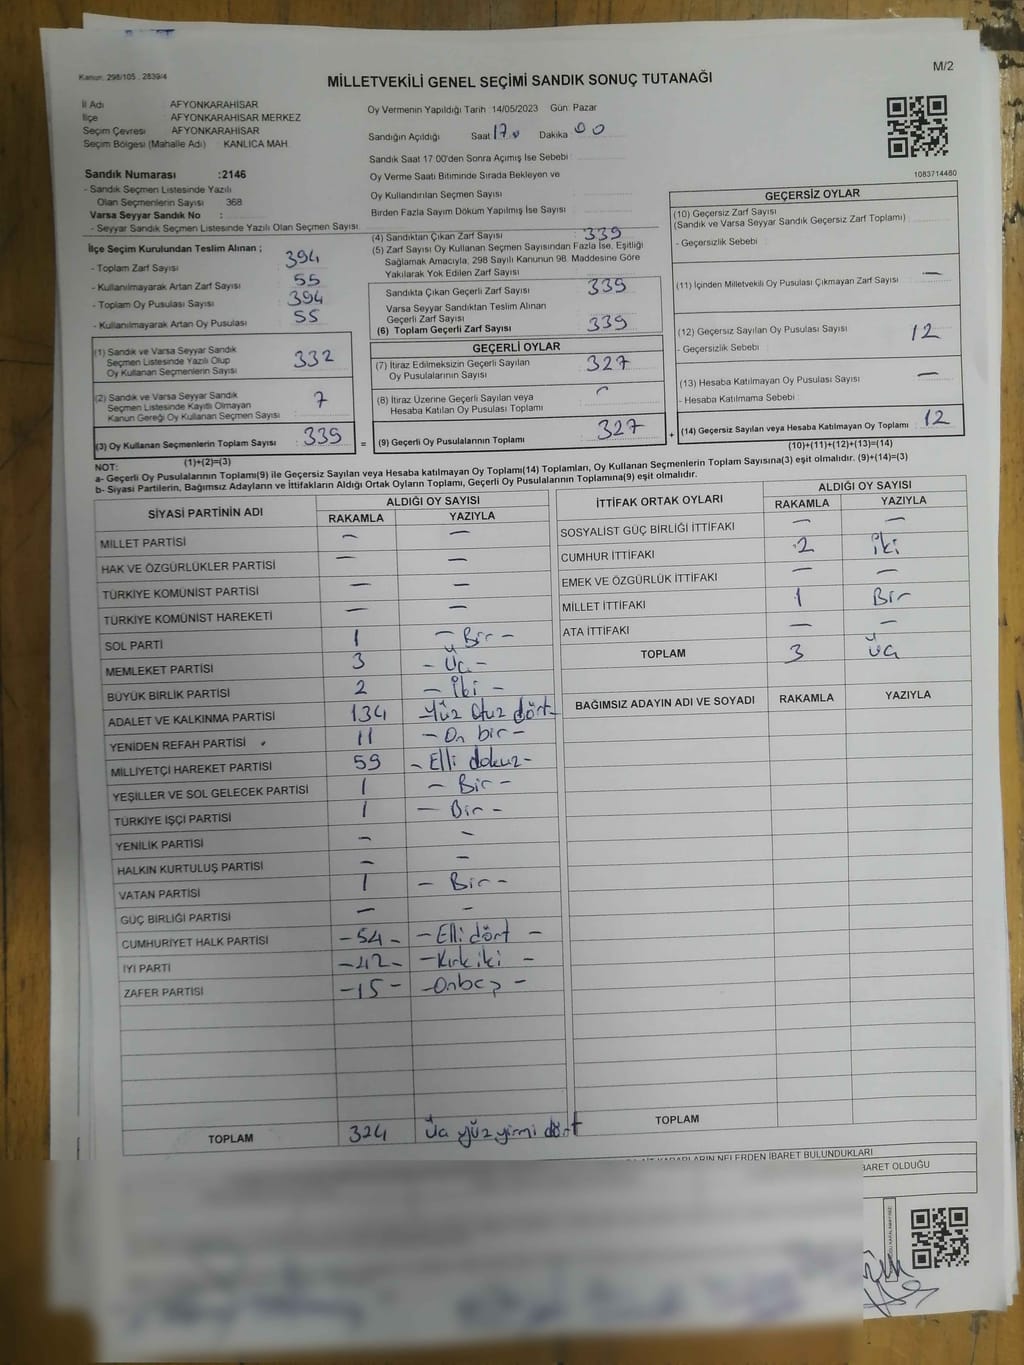 Kanun: 298/105 , 2839/4
M/2
MİLLETVEKİLİ GENEL SEÇİMİ SANDIK SONUÇ TUTANAĞI
İl Adı AFYONKARAHİSAR
İlçe AFYONKARAHİSAR MERKEZ
Seçim Çevresi AFYONKARAHİSAR
Seçim Bölgesi (Mahalle Adı) KANLICA MAH.
Oy Vermenin Yapıldığı Tarih : 14/05/2023 Gün: Pazar
Sandığın Açıldığı Saat 17 Dakika 00
Sandık Saat 17 00'den Sonra Açımış İse Sebebi :
Oy Verme Saati Bitiminde Sırada Bekleyen ve
Oy Kullandırılan Seçmen Sayısı
Birden Fazla Sayım Döküm Yapılmış İse Sayısı
1083714460
Sandık Numarası :2146
- Sandık Seçmen Listesinde Yazılı
Olan Seçmenlerin Sayısı 368
Varsa Seyyar Sandık No :
- Seyyar Sandık Seçmen Listesinde Yazılı Olan Seçmen Sayısı
İlçe Seçim Kurulundan Teslim Alınan ;
- Toplam Zarf Sayısı 394
- Kullanılmayarak Artan Zarf Sayısı 55
- Toplam Oy Pusulası Sayısı 394
- Kullanılmayarak Artan Oy Pusulası 55
(1) Sandık ve Varsa Seyyar Sandık
Seçmen Listesinde Yazılı Olup
Oy Kullanan Seçmenlerin Sayısı 332
(2) Sandık ve Varsa Seyyar Sandık
Seçmen Listesinde Kayıtlı Olmayan
Kanun Gereği Oy Kullanan Seçmen Sayısı : 7
(3) Oy Kullanan Seçmenlerin Toplam Sayısı : 339 =
(1)+(2)=(3)
(4) Sandıktan Çıkan Zarf Sayısı : 339
(5) Zarf Sayısı Oy Kullanan Seçmen Sayısından Fazla İse, Eşitliği
Sağlamak Amacıyla, 298 Sayılı Kanunun 98. Maddesine Göre
Yakılarak Yok Edilen Zarf Sayısı :
Sandıkta Çıkan Geçerli Zarf Sayısı : 339
Varsa Seyyar Sandıktan Teslim Alınan
Geçerli Zarf Sayısı
(6) Toplam Geçerli Zarf Sayısı : 339
GEÇERLİ OYLAR
(7) İtiraz Edilmeksizin Geçerli Sayılan
Oy Pusulalarının Sayısı : 327
(8) İtiraz Üzerine Geçerli Sayılan veya
Hesaba Katılan Oy Pusulası Toplamı : -
(9) Geçerli Oy Pusulalarının Toplamı : 327 +
GEÇERSİZ OYLAR
(10) Geçersiz Zarf Sayısı
(Sandık ve Varsa Seyyar Sandık Geçersiz Zarf Toplamı) :
- Geçersizlik Sebebi :
(11) İçinden Milletvekili Oy Pusulası Çıkmayan Zarf Sayısı : —
(12) Geçersiz Sayılan Oy Pusulası Sayısı : 12
- Geçersizlik Sebebi :
(13) Hesaba Katılmayan Oy Pusulası Sayısı : —
- Hesaba Katılmama Sebebi :
(14) Geçersiz Sayılan veya Hesaba Katılmayan Oy Toplamı : 12
(10)+(11)+(12)+(13)=(14)
NOT:
a- Geçerli Oy Pusulalarının Toplamı(9) ile Geçersiz Sayılan veya Hesaba katılmayan Oy Toplamı(14) Toplamları, Oy Kullanan Seçmenlerin Toplam Sayısına(3) eşit olmalıdır. (9)+(14)=(3)
b- Siyasi Partilerin, Bağımsız Adayların ve İttifakların Aldığı Ortak Oyların Toplamı, Geçerli Oy Pusulalarının Toplamına(9) eşit olmalıdır.
SİYASİ PARTİNİN ADI ALDIĞI OY SAYISI
RAKAMLA YAZIYLA
MİLLET PARTİSİ — —
HAK VE ÖZGÜRLÜKLER PARTİSİ — —
TÜRKİYE KOMÜNİST PARTİSİ — —
TÜRKİYE KOMÜNİST HAREKETİ — —
SOL PARTİ 1 - Bir -
MEMLEKET PARTİSİ 3 - Üç -
BÜYÜK BİRLİK PARTİSİ 2 - İki -
ADALET VE KALKINMA PARTİSİ 134 -Yüz Otuz dört-
YENİDEN REFAH PARTİSİ 11 - On bir -
MİLLİYETÇİ HAREKET PARTİSİ 59 - Elli dokuz -
YEŞİLLER VE SOL GELECEK PARTİSİ 1 - Bir -
TÜRKİYE İŞÇİ PARTİSİ 1 - Bir -
YENİLİK PARTİSİ — —
HALKIN KURTULUŞ PARTİSİ — —
VATAN PARTİSİ 1 - Bir -
GÜÇ BİRLİĞİ PARTİSİ — —
CUMHURİYET HALK PARTİSİ -54- - Elli dört -
İYİ PARTİ -42- - Kırk iki -
ZAFER PARTİSİ -15- - Onbeş -
TOPLAM 324 Üç yüz yirmi dört
İTTİFAK ORTAK OYLARI ALDIĞI OY SAYISI
RAKAMLA YAZIYLA
SOSYALİST GÜÇ BİRLİĞİ İTTİFAKI — —
CUMHUR İTTİFAKI 2 İki
EMEK VE ÖZGÜRLÜK İTTİFAKI — —
MİLLET İTTİFAKI 1 Bir
ATA İTTİFAKI — —
TOPLAM 3 Üç
BAĞIMSIZ ADAYIN ADI VE SOYADI RAKAMLA YAZIYLA
TOPLAM
KARARLARIN NELERDEN İBARET BULUNDUKLARI
İBARET OLDUĞU